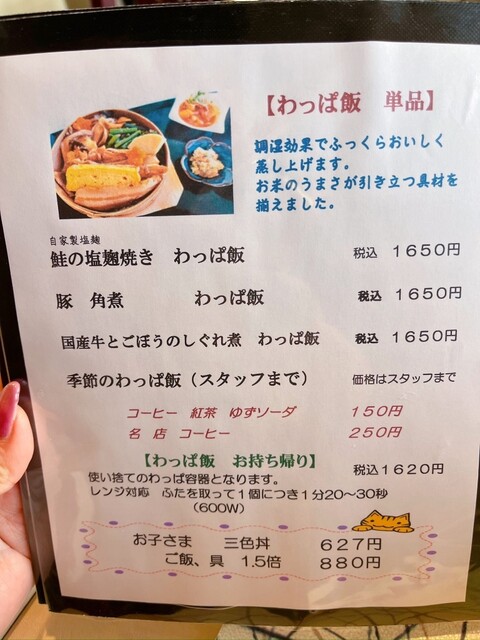 【わっぱ飯 単品】
調湿効果でふっくらおいしく
蒸し上げます。
お米のうまさが引き立つ具材を
揃えました。
自家製塩麹
鮭の塩麹焼き わっぱ飯 税込 1650円
豚 角煮 わっぱ飯 税込 1650円
国産牛とごぼうのしぐれ煮 わっぱ飯 税込 1650円
季節のわっぱ飯(スタッフまで) 価格はスタッフまで
コーヒー 紅茶 ゆずソーダ 150円
名店コーヒー 250円
【わっぱ飯 お持ち帰り】 税込1620円
使い捨てのわっぱ容器となります。
レンジ対応 ふたを取って1個につき1分20~30秒
(600W)
お子さま 三色丼 627円
ご飯、具 1.5倍 880円